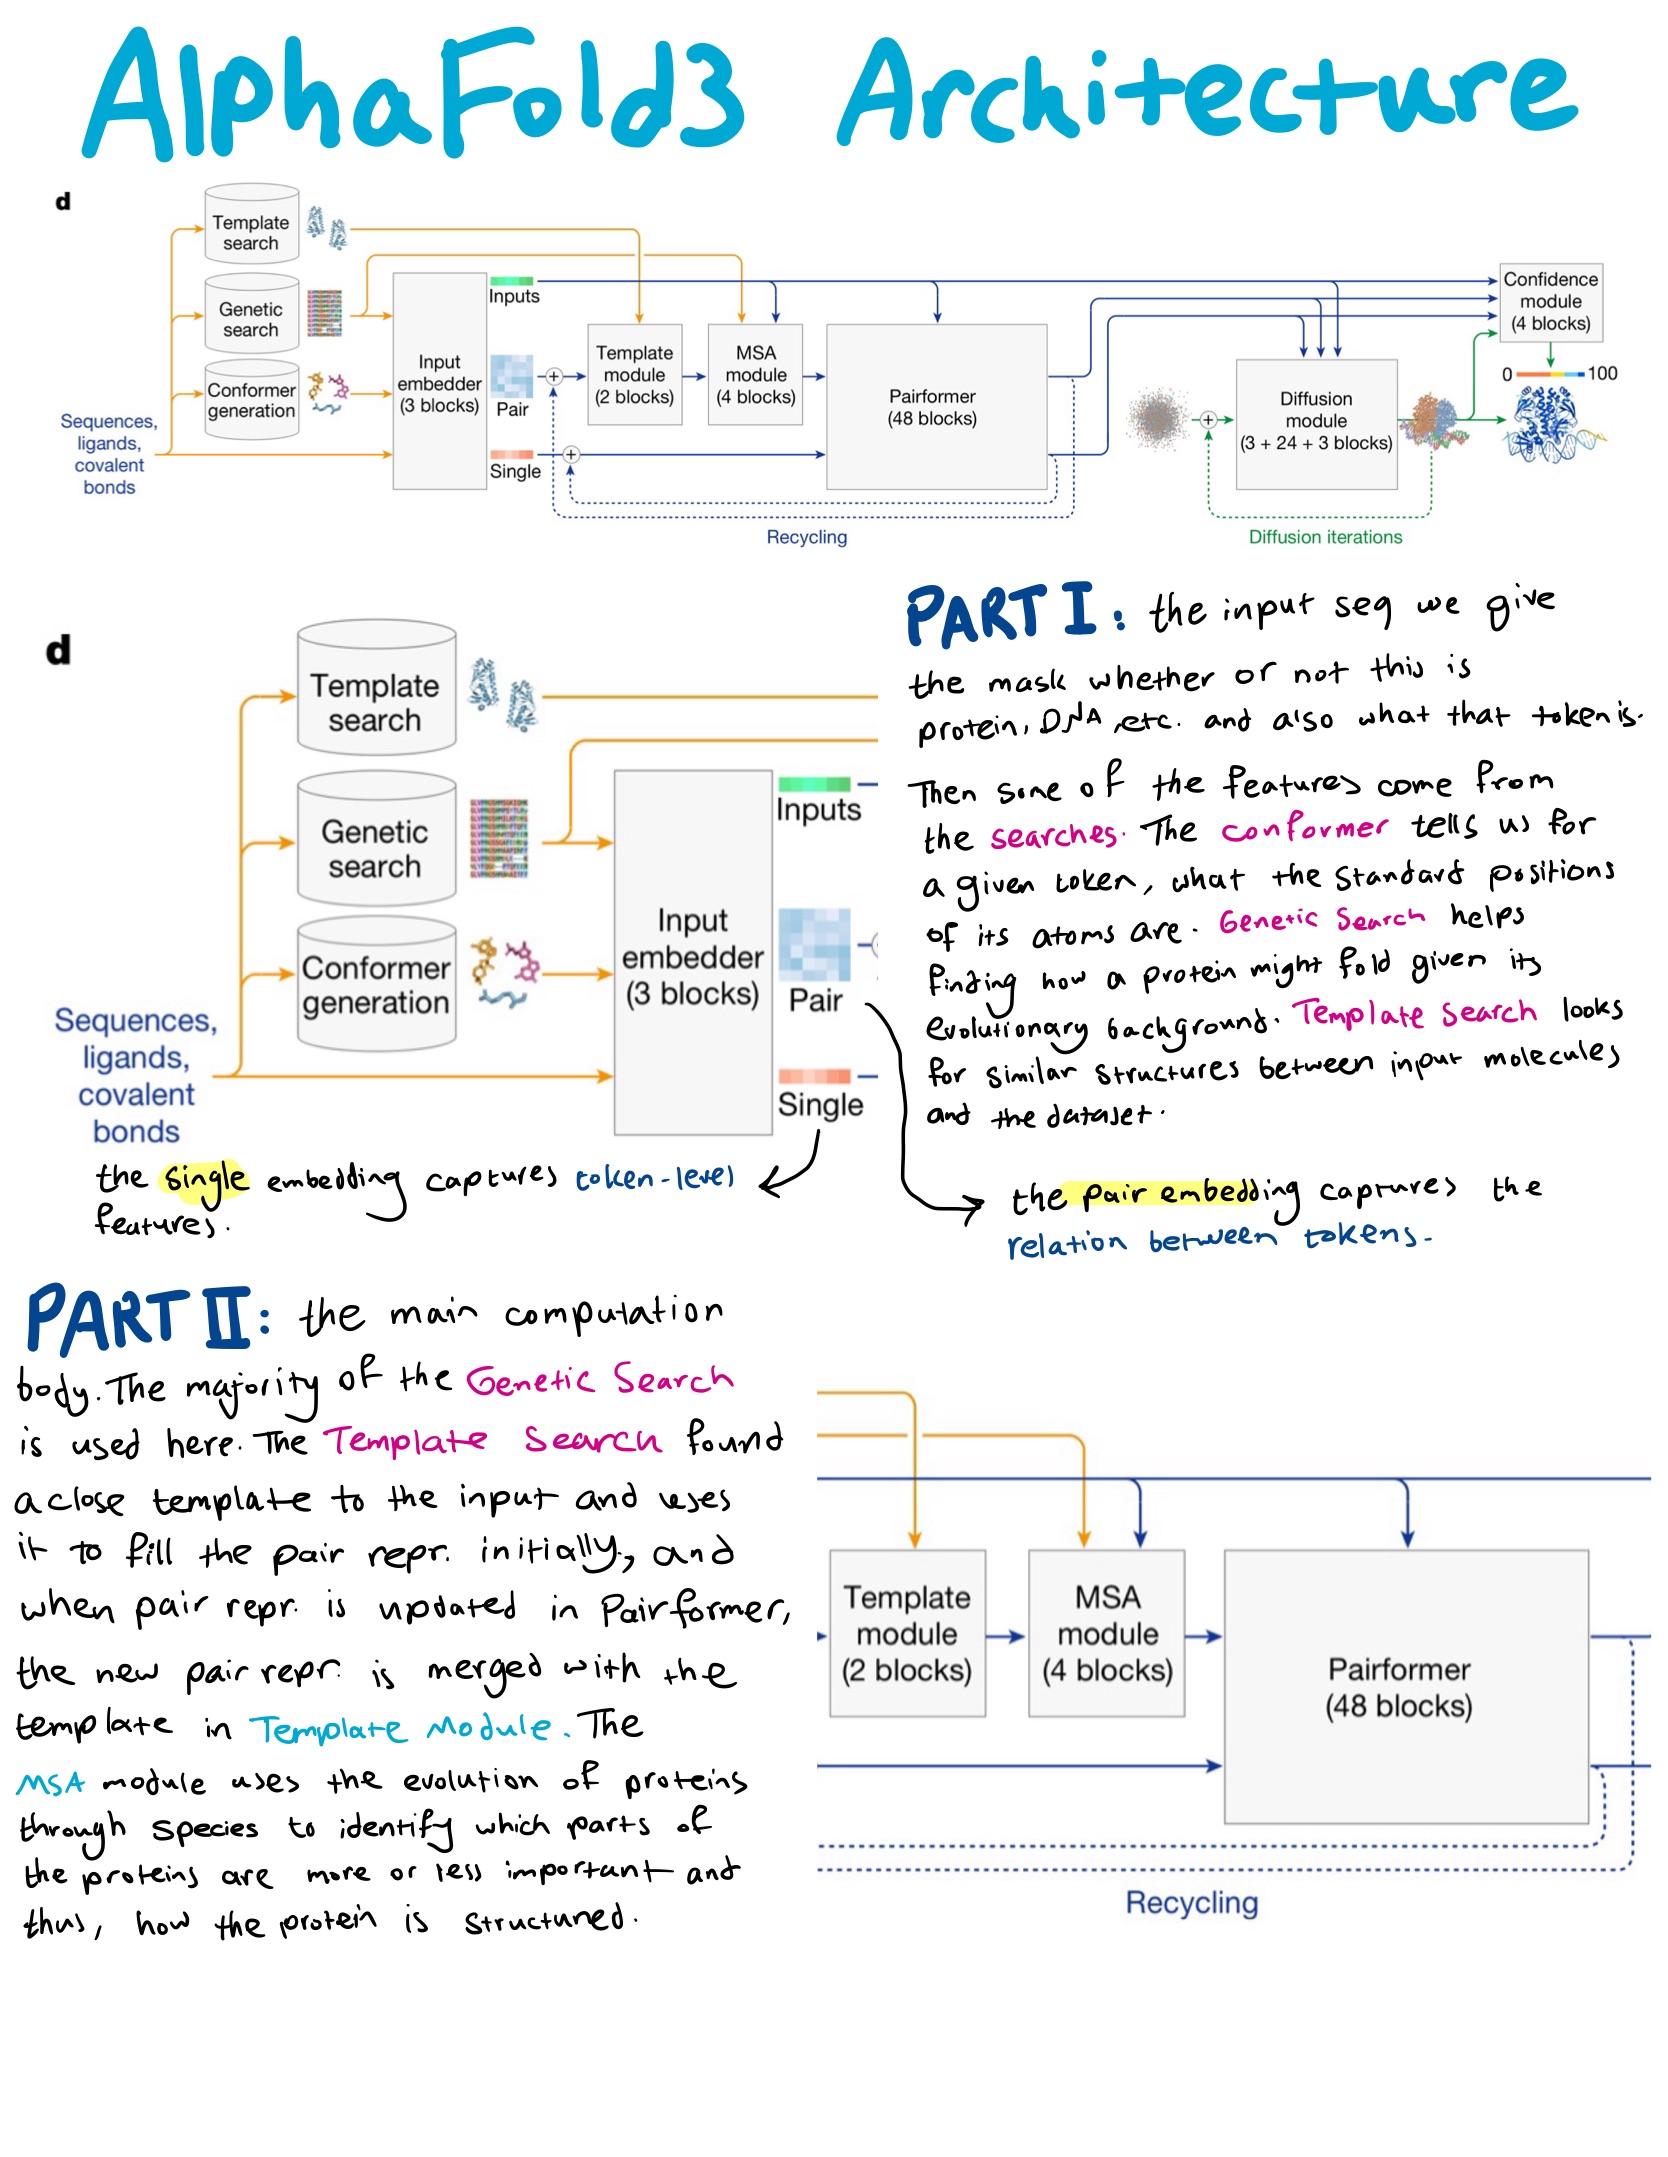 AlphaFold3 Architecture
d
Template
search
Genetic
search
Conformer
generation
Sequences,
ligands,
covalent
bonds
Input
embedder
(3 blocks)
Inputs
Pair
Single
Template
module
(2 blocks)
MSA
module
(4 blocks)
Pairformer
(48 blocks)
Recycling
Diffusion
module
(3 + 24 + 3 blocks)
Diffusion iterations
Confidence
module
(4 blocks)
0 100
d
Template
search
Genetic
search
Conformer
generation
Sequences,
ligands,
covalent
bonds
Input
embedder
(3 blocks)
Inputs
Pair
Single
the single embedding captures token-level
features.
PART I : the input seq we give
the mask whether or not this is
protein, DNA, etc. and also what that token is.
Then some of the features come from
the searches. The conformer tells us for
a given token, what the standard positions
of its atoms are. Genetic Search helps
finding how a protein might fold given its
evolutionary background. Template Search looks
for similar structures between input molecules
and the dataset.
the pair embedding captures the
relation between tokens.
PART II : the main computation
body. The majority of the Genetic Search
is used here. The Template Search found
a close template to the input and uses
it to fill the pair repr. initially, and
when pair repr. is updated in Pairformer,
the new pair repr. is merged with the
template in Template Module. The
MSA module uses the evolution of proteins
through species to identify which parts of
the proteins are more or less important and
thus, how the protein is structured.
Template
module
(2 blocks)
MSA
module
(4 blocks)
Pairformer
(48 blocks)
Recycling